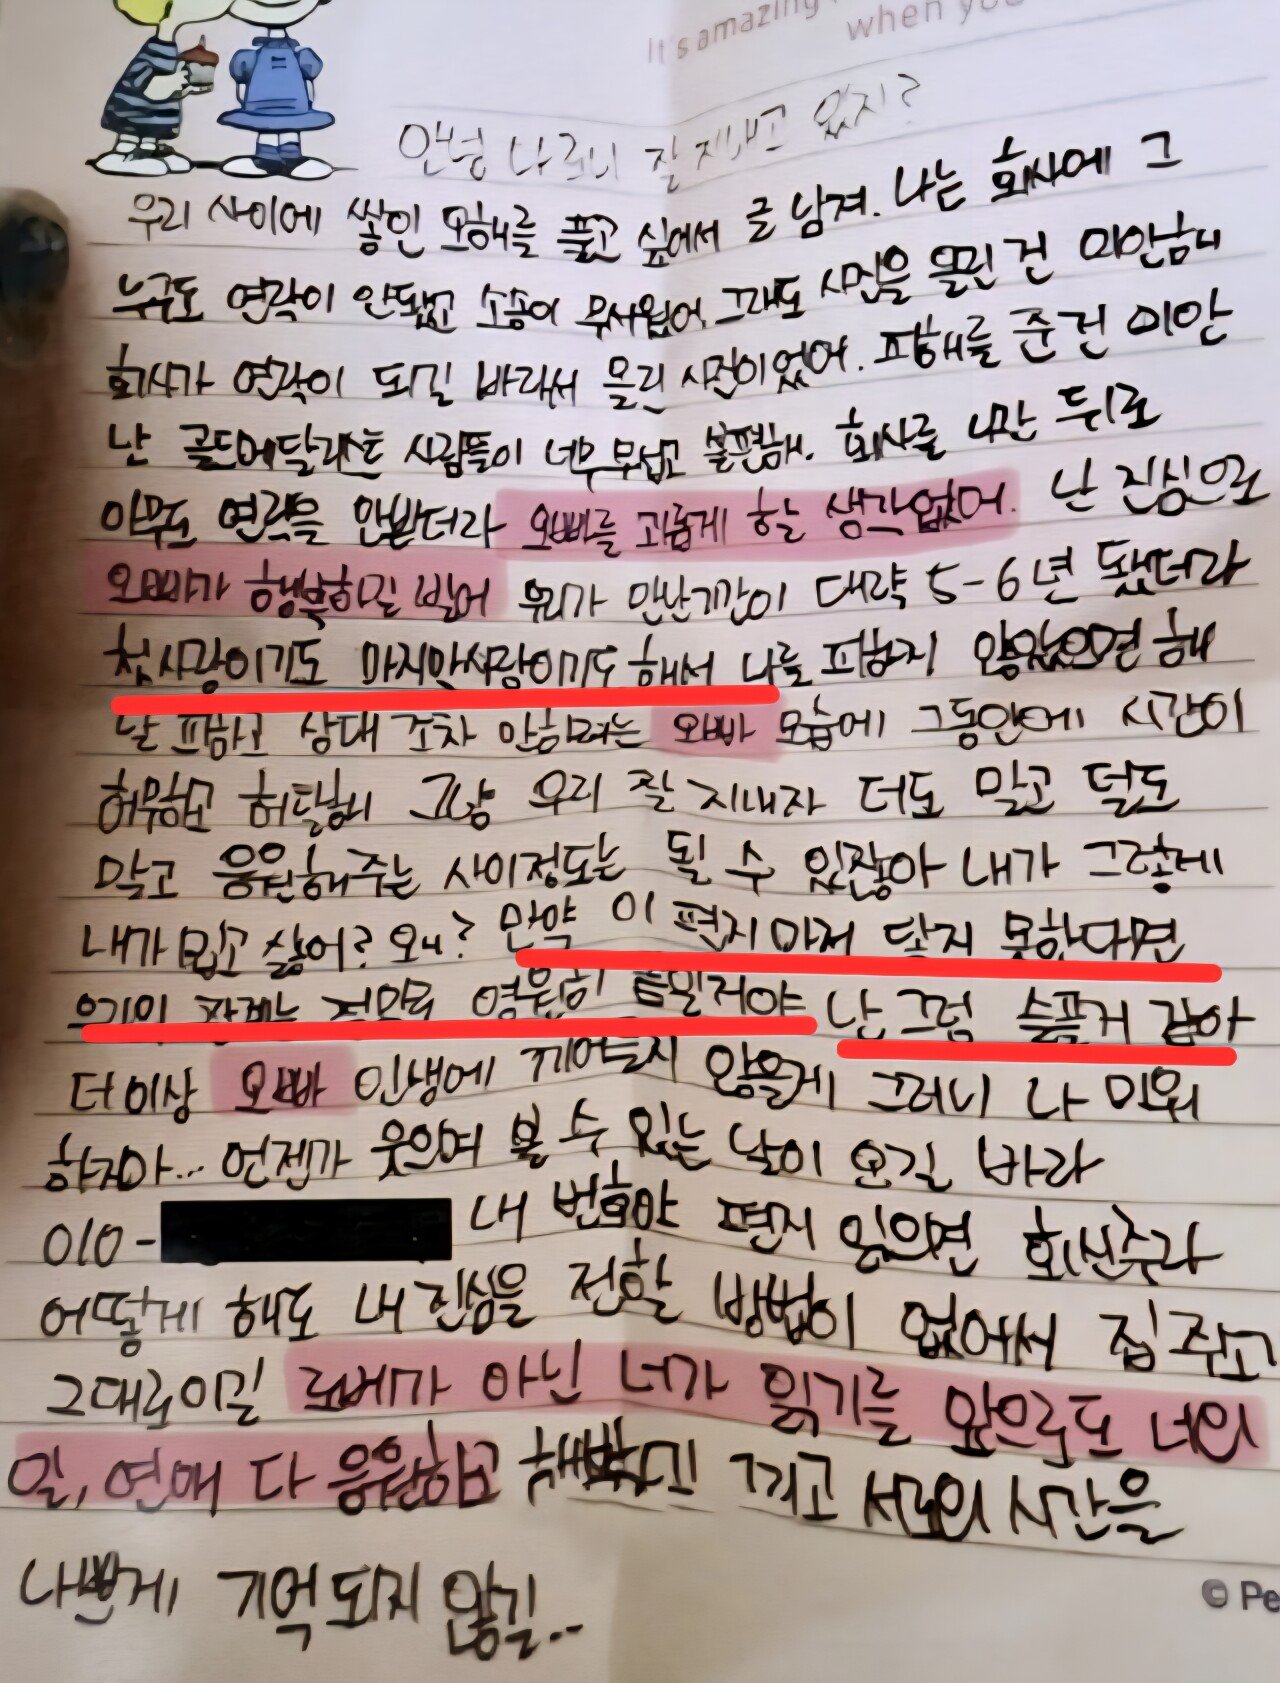 It's amazing
when you
안녕 나로니 잘 지내고 있지?
우리 사이에 쌓인 오해를 풀고 싶어서 글 남겨. 나는 회사에 그
누구도 연락이 안됐었고 소송이 무서웠어. 그래도 사진을 올린 건 미안해
회사가 연락이 되길 바래서 올린 사진이었어. 피해를 준건 미안
난 골드메달리스트 사람들이 너무 무섭고 불편해. 회사를 나간 뒤로
아무도 연락을 안받더라 오빠를 괴롭게 하날 생각없어. 난 진심으로
오빠가 행복하길 빌어 우리가 만난기간이 대략 5-6년 됐더라
첫사랑이기도 마지막사랑이기도 해서 나를 피하지 않았으면 해
날 피하고 상대 조차 안하려는 오빠 모습에 그동안에 시간이
허무하고 허탈해 그냥 우리 잘 지내자 더도 말고 덜도
말고 응원해주는 사이정도는 될 수 있잖아 내가 그렇게
내가 밉고 싫어? 왜? 만약 이 편지마저 닿지 못한다면
우리의 관계는 정말로 영원히 틀린거야 난 그럼 슬플거 같아
더이상 오빠 인생에 끼어들지 않을게 그러니 나 미워
하지마... 언젠가 웃으며 볼 수 있는 날이 오길 바라
010- 내 번호야 편지 읽으면 회신주라
어떻게 해도 내 진심을 전할 방법이 없어서 집 주고
그대로이길 로베가 아닌 너가 읽기를 앞으로도 너의
일, 연애 다 응원하고 끼고 서로의 시간을
나쁘게 기억되지 않길..
© Pe